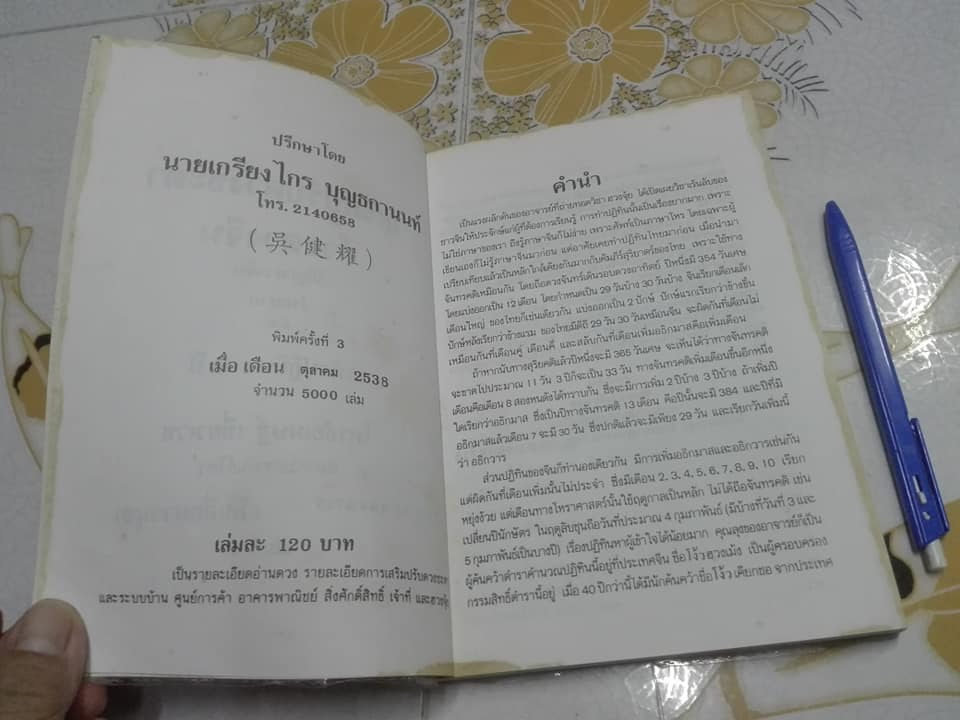 ปรึกษาโดย
นายเกรียงไกร บุญธกานนท์
โทร. 2140658
(吳健耀)
พิมพ์ครั้งที่ 3
เมื่อ เดือน ตุลาคม 2538
จำนวน 5000 เล่ม
เล่มละ 120 บาท
เป็นรายละเอียดอ่านดวง รายละเอียดการเสริมปรับดวงชะตา
และระบบบ้าน ศูนย์การค้า อาคารพาณิชย์ สิ่งศักดิ์สิทธิ์ เจ้าที่ และฮวงจุ้ย
คำนำ
เป็นแรงผลักดันของอาจารย์ที่ถ่ายทอดวิชา ฮวงจุ้ย ได้เปิดเผยวิชาอันลับของ
ชาวจีนให้ประจักษ์แก่ผู้ที่ต้องการเรียนรู้ การทำปฏิทินนั้นเป็นเรื่องยากมาก เพราะ
ไม่ใช่ภาษาของเรา ถึงรู้ภาษาจีนก็ไม่ง่าย เพราะศัพท์เป็นภาษาโหร โดยเฉพาะผู้
เขียนเองก็ไม่รู้ภาษาจีนมาก่อน แต่อาศัยเคยทำปฏิทินไทยมาก่อน เมื่อนำมา
เปรียบเทียบแล้วเป็นหลักใกล้เคียงกันมากกับคัมภีร์สุริยาตร์ของไทย เพราะใช้ทาง
จันทรคติเหมือนกัน โดยถือดวงจันทร์เดินรอบดวงอาทิตย์ ปีหนึ่งมี 354 วันเศษ
โดยแบ่งออกเป็น 12 เดือน โดยกำหนดเป็น 29 วันบ้าง 30 วันบ้าง จีนเรียกเดือนเล็ก
เดือนใหญ่ ของไทยก็เช่นเดียวกัน แบ่งออกเป็น 2 ปักษ์ ปักษ์แรกเรียกว่าข้างขึ้น
ปักษ์หลังเรียกว่าข้างแรม ของไทยมีดิถี 29 วัน 30 วันเหมือนจีน จะผิดกันที่เดือนไม่
เหมือนกันที่เดือนคู่ เดือนคี่ และสลับกันที่เดือนเพิ่มอธิกมาสคือเพิ่มเดือน
ถ้าหากนับทางสุริยคติแล้วปีหนึ่งจะมี 365 วันเศษ จะเห็นได้ว่าทางจันทรคติ
จะขาดไปประมาณ 11 วัน 3 ปีก็จะเป็น 33 วัน ทางจันทรคติเพิ่มเดือนขึ้นอีกหนึ่ง
เดือนคือเดือน 8 สองหนดังได้ทราบกัน ซึ่งจะมีการเพิ่ม 2 ปีบ้าง 3 ปีบ้าง ถ้าเพิ่มปี
ใดเรียกว่าอธิกมาส ซึ่งเป็นปีทางจันทรคติ 13 เดือน คือปีนั้นจะมี 384 และปีที่มี
อธิกมาสแล้วเดือน 7 จะมี 30 วัน ซึ่งปกติแล้วจะมีเพียง 29 วัน และเรียกวันเพิ่มนี้
ว่า อธิกวาร
ส่วนปฏิทินของจีนก็ทำนองเดียวกัน มีการเพิ่มอธิกมาสและอธิกวารเช่นกัน
แต่ผิดกันที่เดือนเพิ่มนั้นไม่ประจำ ซึ่งมีเดือน 2, 3, 4, 5, 6, 7, 8, 9, 10 เรียก
หยุ่งง้วย แต่เดือนทางโหราศาสตร์นั้นใช้ฤดูกาลเป็นหลัก ไม่ได้ถือจันทรคติ เช่น
เปลี่ยนปีนักษัตร ในฤดูลิบชุนถือวันที่ประมาณ 4 กุมภาพันธ์ (มีบ้างที่วันที่ 3 และ
5 กุมภาพันธ์เป็นบางปี) เรื่องปฏิทินหาผู้เข้าใจได้น้อยมาก คุณลุงของอาจารย์ก็เป็น
ผู้ค้นคว้าตำราคำนวณปฏิทินนี้อยู่ที่ประเทศจีน ชื่อ โง้วฮวงเม้ง เป็นผู้ครอบครอง
กรรมสิทธิ์ตำรานี้อยู่ เมื่อ 40 ปีกว่านี้ได้มีนักค้นคว้าชื่อโง้ว เคียกซอ จากประเทศ